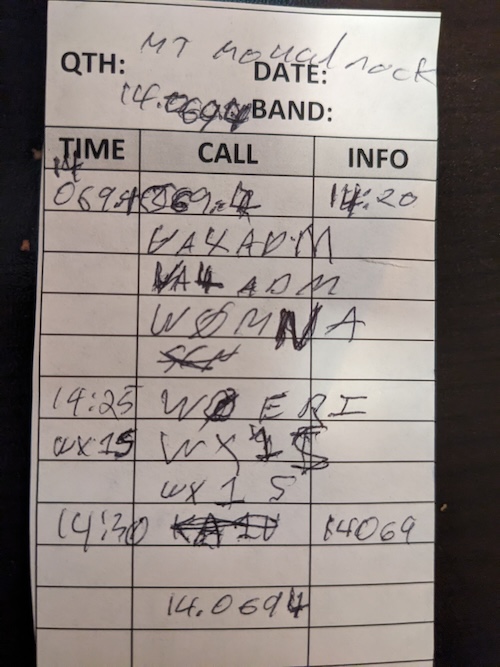 QTH: MT DATE:
14.0694 BAND:
TIME CALL INFO
14
069.4 069.4 14:20
VA4ADM
VA4 ADM
WØMNA
14:25 WØ ERI
WX15 WX1S
WX1S
14:30 14069
14.0694